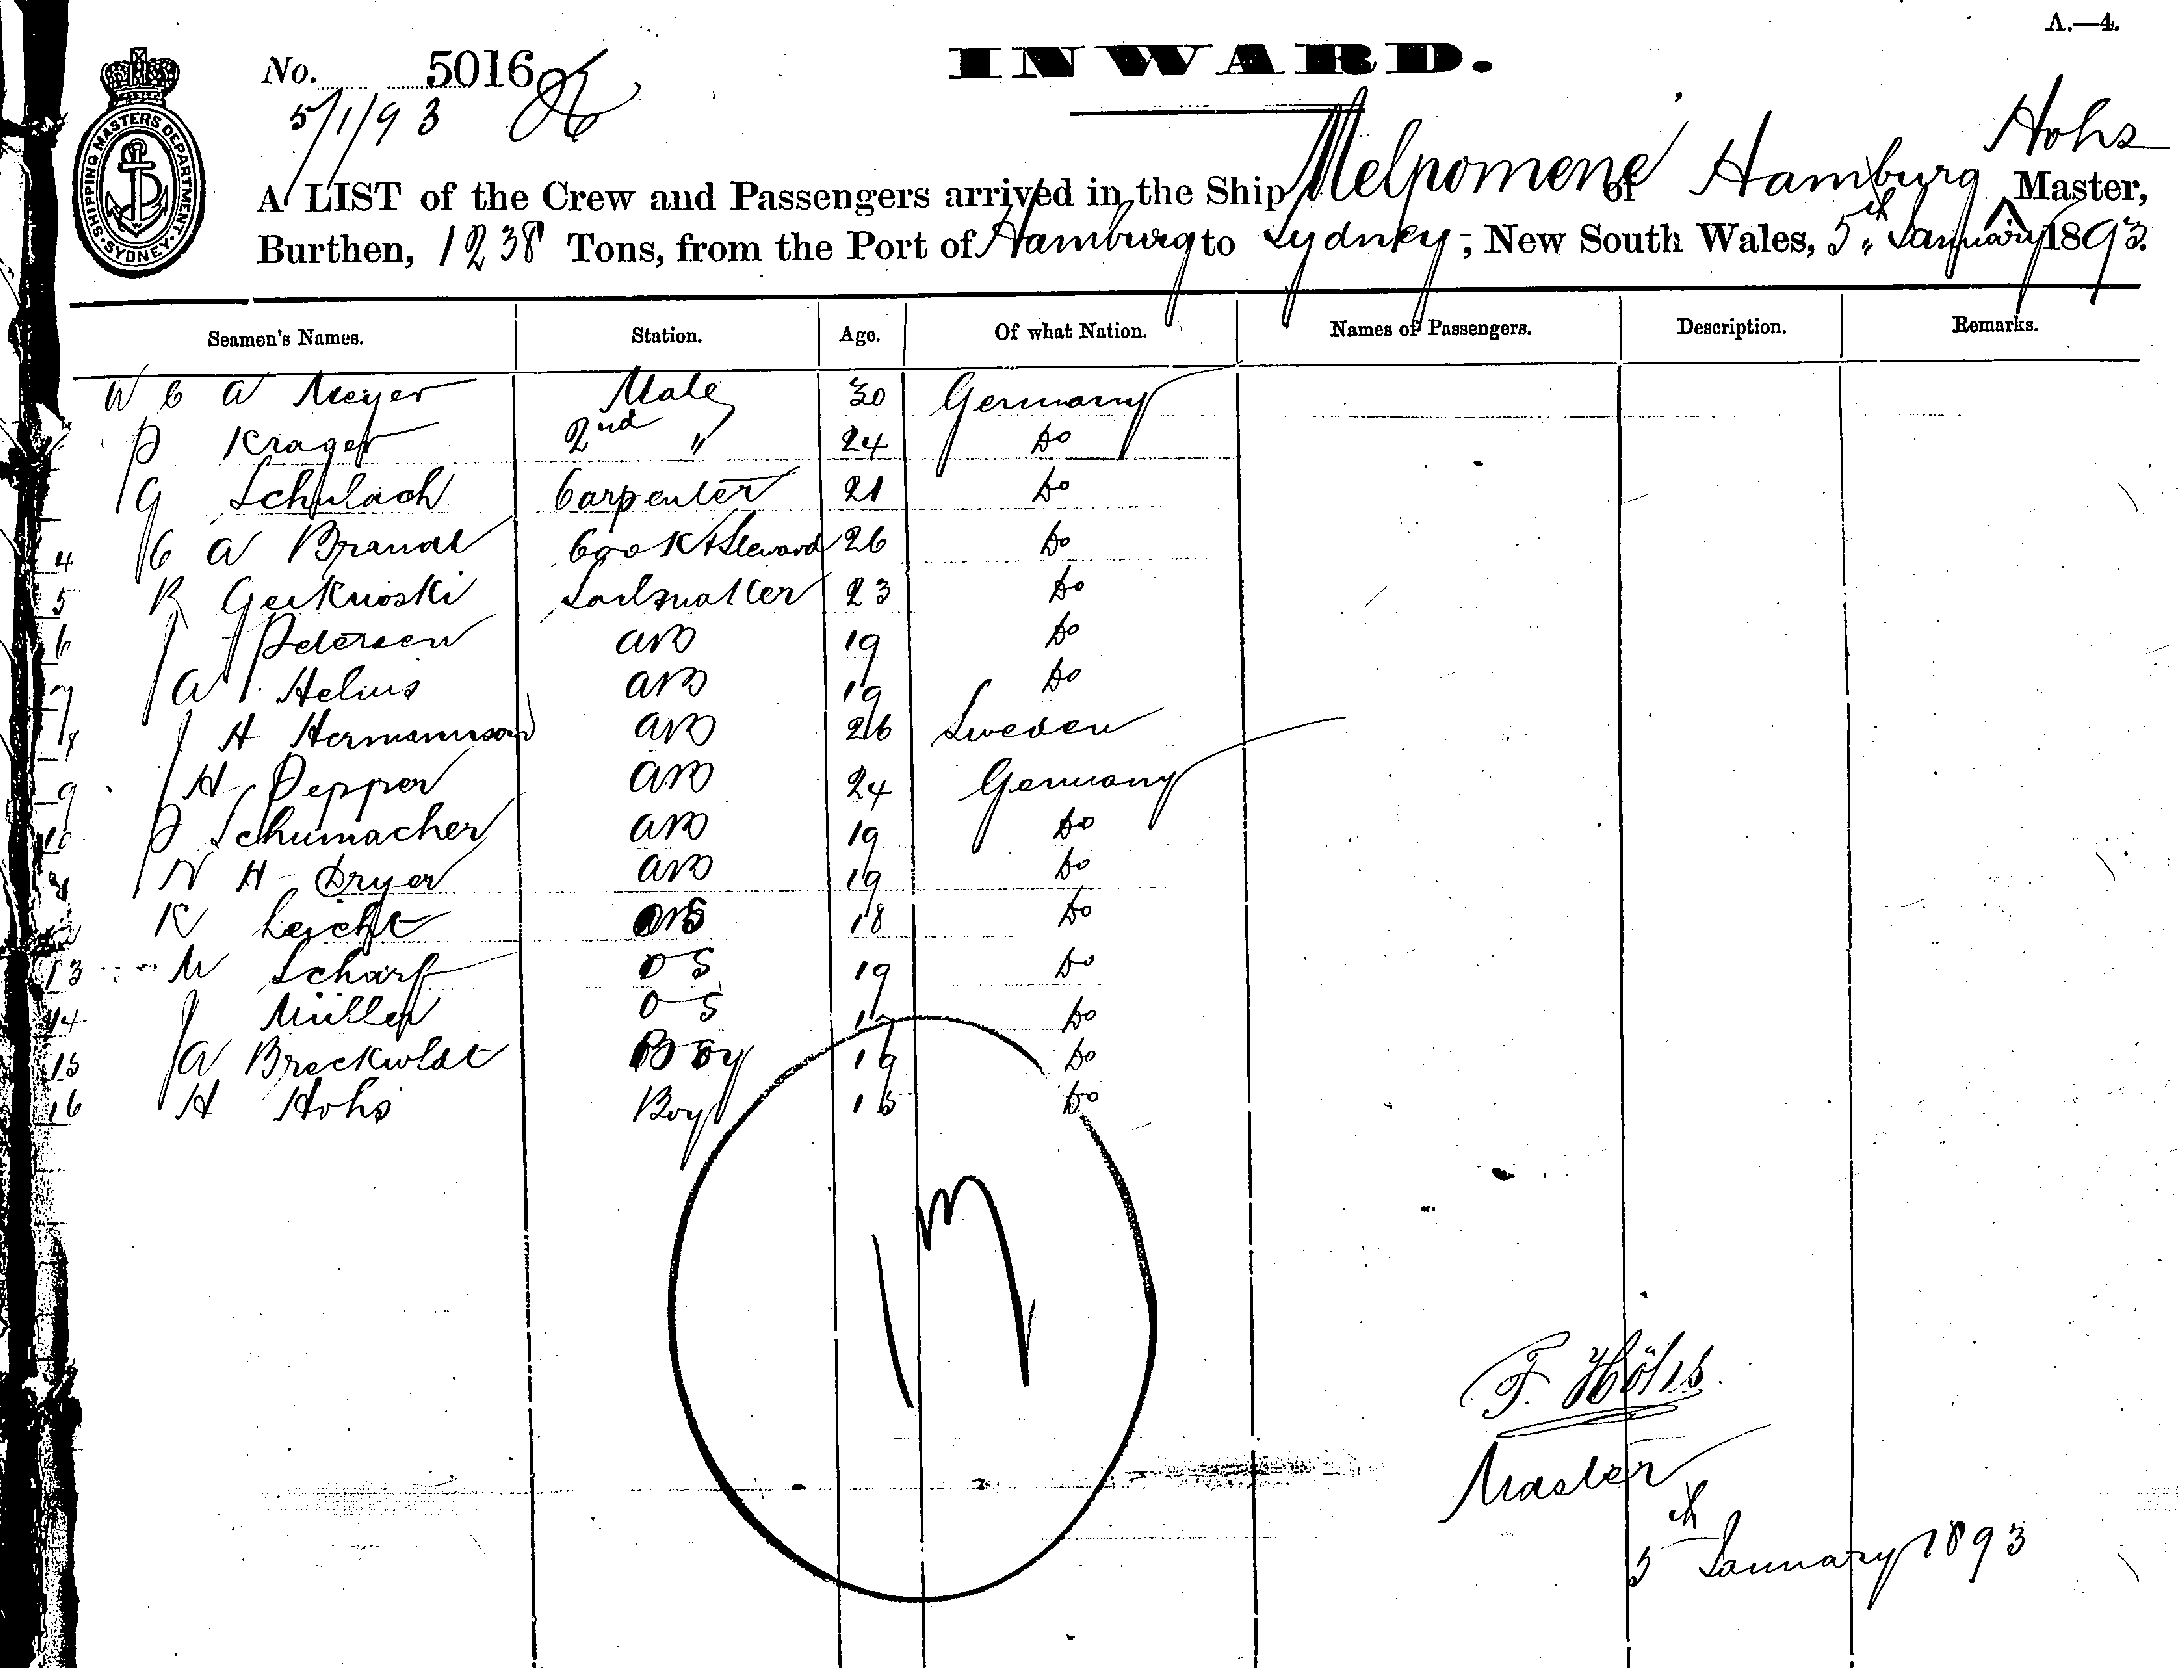 A.—4.
No. 5016
INWARD.
5/1/93
SHIPPING MASTERS DEPARTMENT SYDNEY
Hohs
A LIST of the Crew and Passengers arrived in the Ship Melpomene of Hamburg Master,
Burthen, 1238 Tons, from the Port of Hamburg to Sydney, New South Wales, 5th January 1893.
Seamen's Names. Station. Age. Of what Nation. Names of Passengers. Description. Remarks.
W C A Meyer Mate 30 Germany
P Krager 2nd " 24 Do
G Schulach Carpenter 21 Do
4 C A Brandt Cook & Steward 26 Do
5 R Sailmaker 23 Do
6 J Petersen AB 19 Do
7 A Helms AB 19 Do
8 H Hermannson AB 26 Sweden
9 H Pepper AB 24 Germany
10 P Schumacher AB 19 Do
N H Dryer AB 19 Do
K Leicht OS 18 Do
13 W Scharf OS 19 Do
14 J Müller OS 17 Do
15 A Breckwldt Boy 19 Do
16 H Hohs Boy 15 Do
F. Höhs
Master
5th January 1893